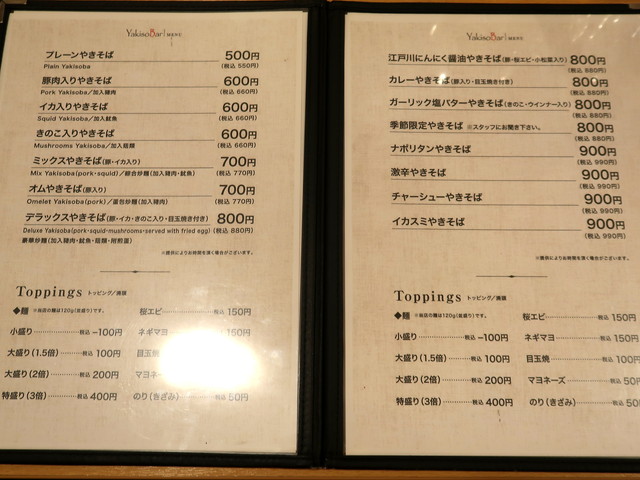 YakisoBar!
プレーンやきそば 500円
Plain Yakisoba (税込 550円)
豚肉入りやきそば 600円
Pork Yakisoba/加入豬肉 (税込 660円)
イカ入りやきそば 600円
Squid Yakisoba/加入魷魚 (税込 660円)
きのこ入りやきそば 600円
Mushrooms Yakisoba/加入菇類 (税込 660円)
ミックスやきそば(豚・イカ入り) 700円
Mix Yakisoba(pork・squid)/綜合炒麵(加入豬肉・魷魚) (税込 770円)
オムやきそば(豚入り) 700円
Omelet Yakisoba(pork)/蛋包炒麵(加入豬肉) (税込 770円)
デラックスやきそば(豚・イカ・きのこ入り・目玉焼き付き) 800円
Deluxe Yakisoba(pork・squid・mushrooms・served with fried egg) (税込 880円)
豪華炒麵(加入豬肉・魷魚・菇類・附煎蛋)
※提供によりお時間を頂く場合がございます。
Toppings トッピング/澆頭
◆麺 ※当店の麺は120g(並盛り)です。
小盛り 税込 −100円
大盛り(1.5倍) 税込 100円
大盛り(2倍) 税込 200円
特盛り(3倍) 税込 400円
桜エビ 税込 150円
ネギマヨ 150円
目玉焼
マヨネーズ
のり(きざみ) 税込 50円
YakisoBar!
江戸川にんにく醤油やきそば(豚・桜エビ・小松菜入り) 800円
(税込 880円)
カレーやきそば(豚入り・目玉焼き付き) 800円
(税込 880円)
ガーリック塩バターやきそば(きのこ・ウインナー入り) 800円
(税込 880円)
季節限定やきそば ※スタッフにお聞き下さい。 800円
(税込 880円)
ナポリタンやきそば 900円
(税込 990円)
激辛やきそば 900円
(税込 990円)
チャーシューやきそば 900円
(税込 990円)
イカスミやきそば 900円
(税込 990円)
※提供によりお時間を頂く場合がございます。
Toppings トッピング/澆頭
◆麺 ※当店の麺は120g(並盛り)です。
小盛り 税込 −100円
大盛り(1.5倍) 税込 100円
大盛り(2倍) 税込 200円
特盛り(3倍) 税込 400円
桜エビ 税込 150円
ネギマヨ 税込 150円
目玉焼 税込 100円
マヨネーズ 税込 50
のり(きざみ) 税込 50